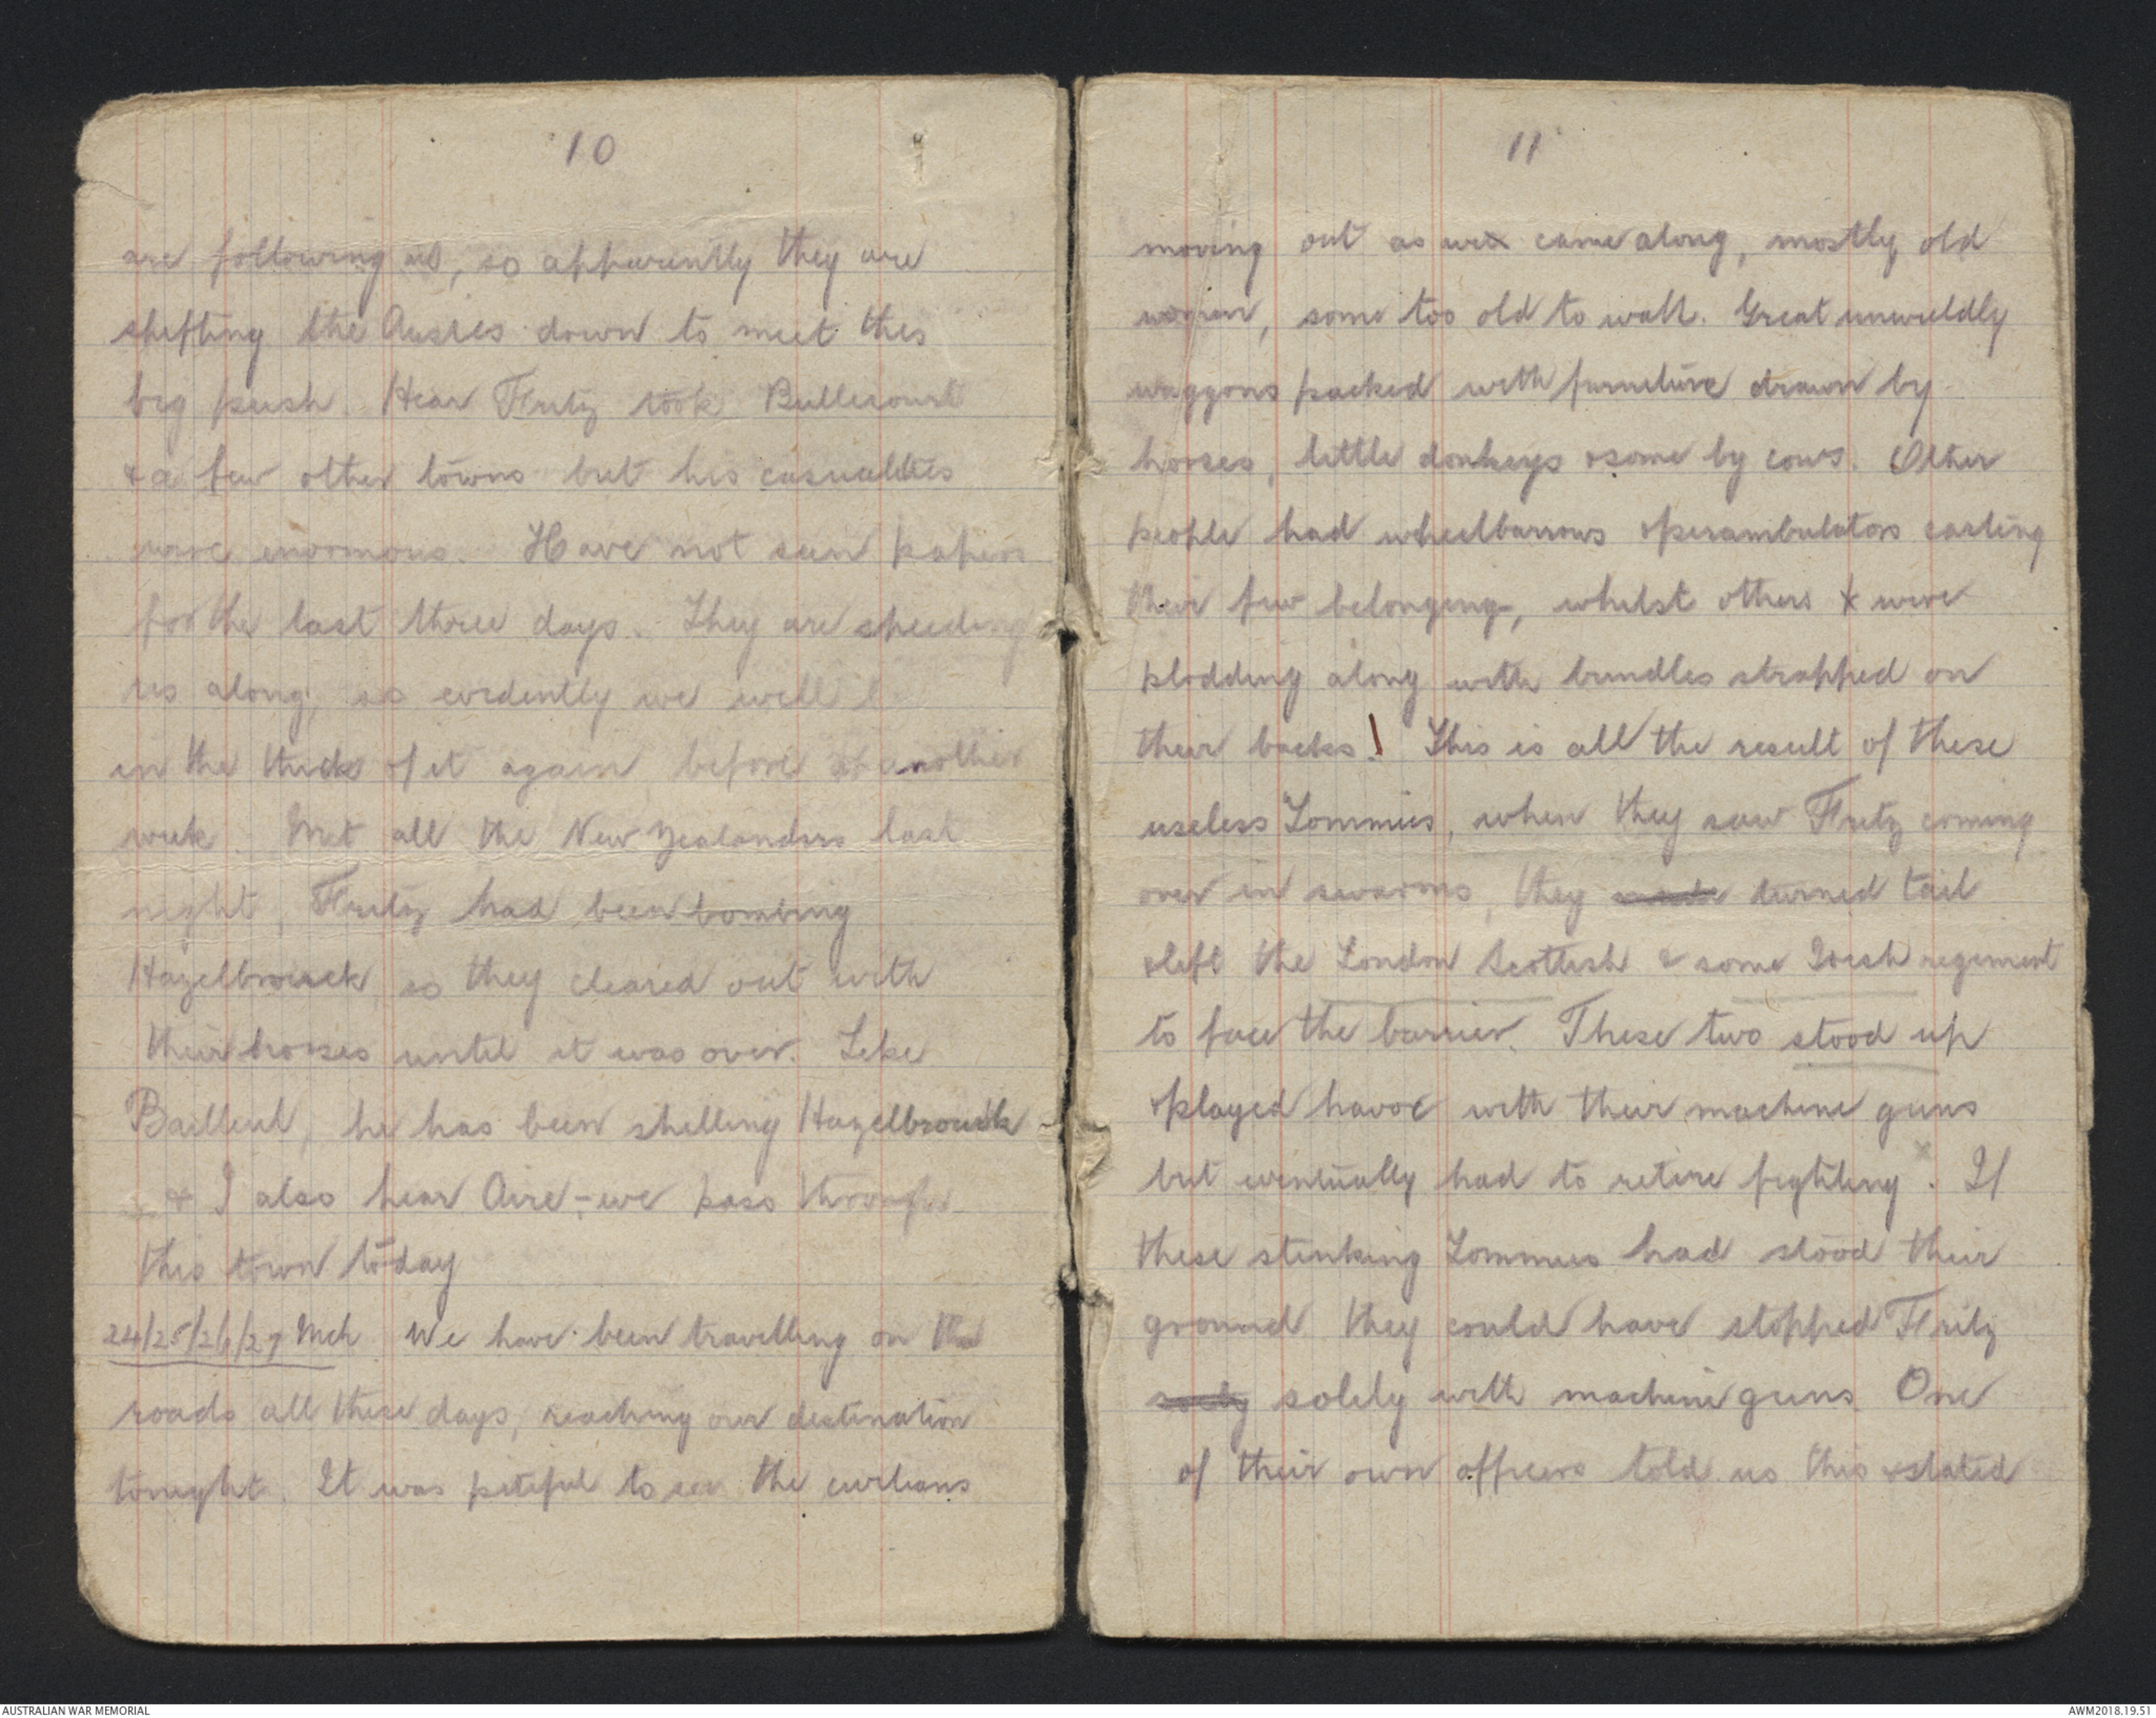 10
are following us, so apparently they are
shifting the Aussies down to meet this
big push. Hear Fritz took Bullecourt
& a few other towns but his casualties
were enormous. Have not seen papers
for the last three days. They are speeding
us along, so evidently we will
in the thick of it again before another
week. Met all the New Zealanders last
night, Fritz had been bombing
Hazelbrouck, so they cleared out with
their horses until it was over. Like
Bailleul, he has been shelling Hazelbrouck
& I also hear Aire - we pass through
this town today
24/25/26/27 Mch We have been travelling on the
roads all these days, reaching our destination
tonight. It was pitiful to see the civlians
11
moving out as we came along, mostly old
women, some too old to walk. Great unwieldly
waggons packed with furniture drawn by
horses, little donkeys & some by cows. Other
people had wheelbarrows & perambulators carting
their few belongings, whilst others were
plodding along with bundles strapped on
their backs! This is all the result of these
useless Tommies, when they saw Fritz coming
over in swarms, they turned tail
& left the London Scottish & some Irish regiment
to face the barrier. These two stood up
& played havoc with their machine guns
but eventually had to retire fighting x. If
these stinking Tommies had stood their
ground they could have stopped Fritz
solely with machine guns. One
of their own officers told us this & stated
AUSTRALIAN WAR MEMORIAL
AWM2018.19.51